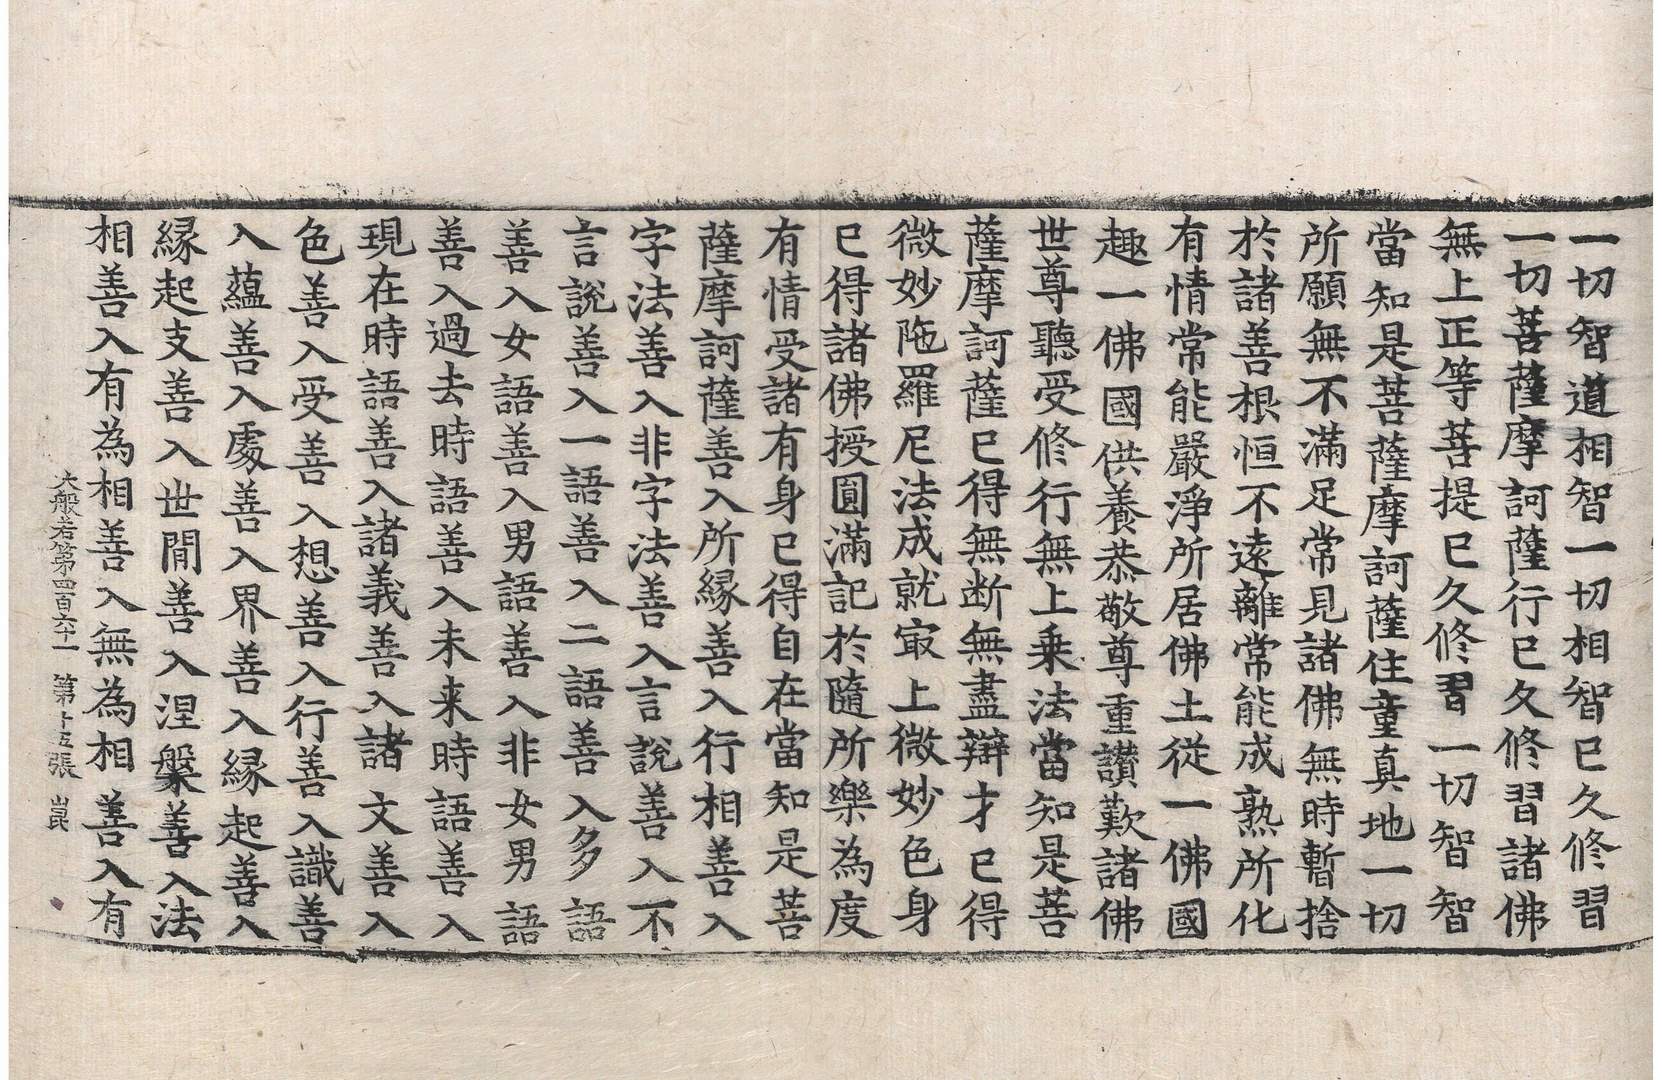 一切智道相智一切相智已久修習
一切菩薩摩訶薩行已久修習諸佛
無上正等菩提已久修習一切智智
當知是菩薩摩訶薩住童真地一切
所願無不滿足常見諸佛無時暫捨
於諸善根恒不遠離常能成熟所化
有情常能嚴淨所居佛土從一佛國
趣一佛國供養恭敬尊重讃歎諸佛
世尊聽受修行無上乗法當知是菩
薩摩訶薩已得無断無盡辯才已得
微妙陁羅尼法成就㝡上微妙色身
已得諸佛授圓滿記於隨所樂為度
有情受諸有身已得自在當知是菩
薩摩訶薩善入所縁善入行相善入
字法善入非字法善入言說善入不
言說善入一語善入二語善入多語
善入女語善入男語善入非女男語
善入過去時語善入未来時語善入
現在時語善入諸義善入諸文善入
色善入受善入想善入行善入識善
入蘊善入處善入界善入縁起善入
縁起支善入世間善入涅槃善入法
相善入有為相善入無為相善入有
大般若第四百六十一　第十五張　崑